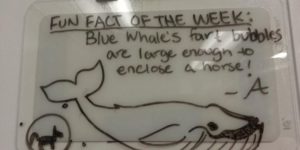 FUN FACT OF THE WEEK:
Blue Whale's fart bubbles
are large enough to
enclose a horse!
- A